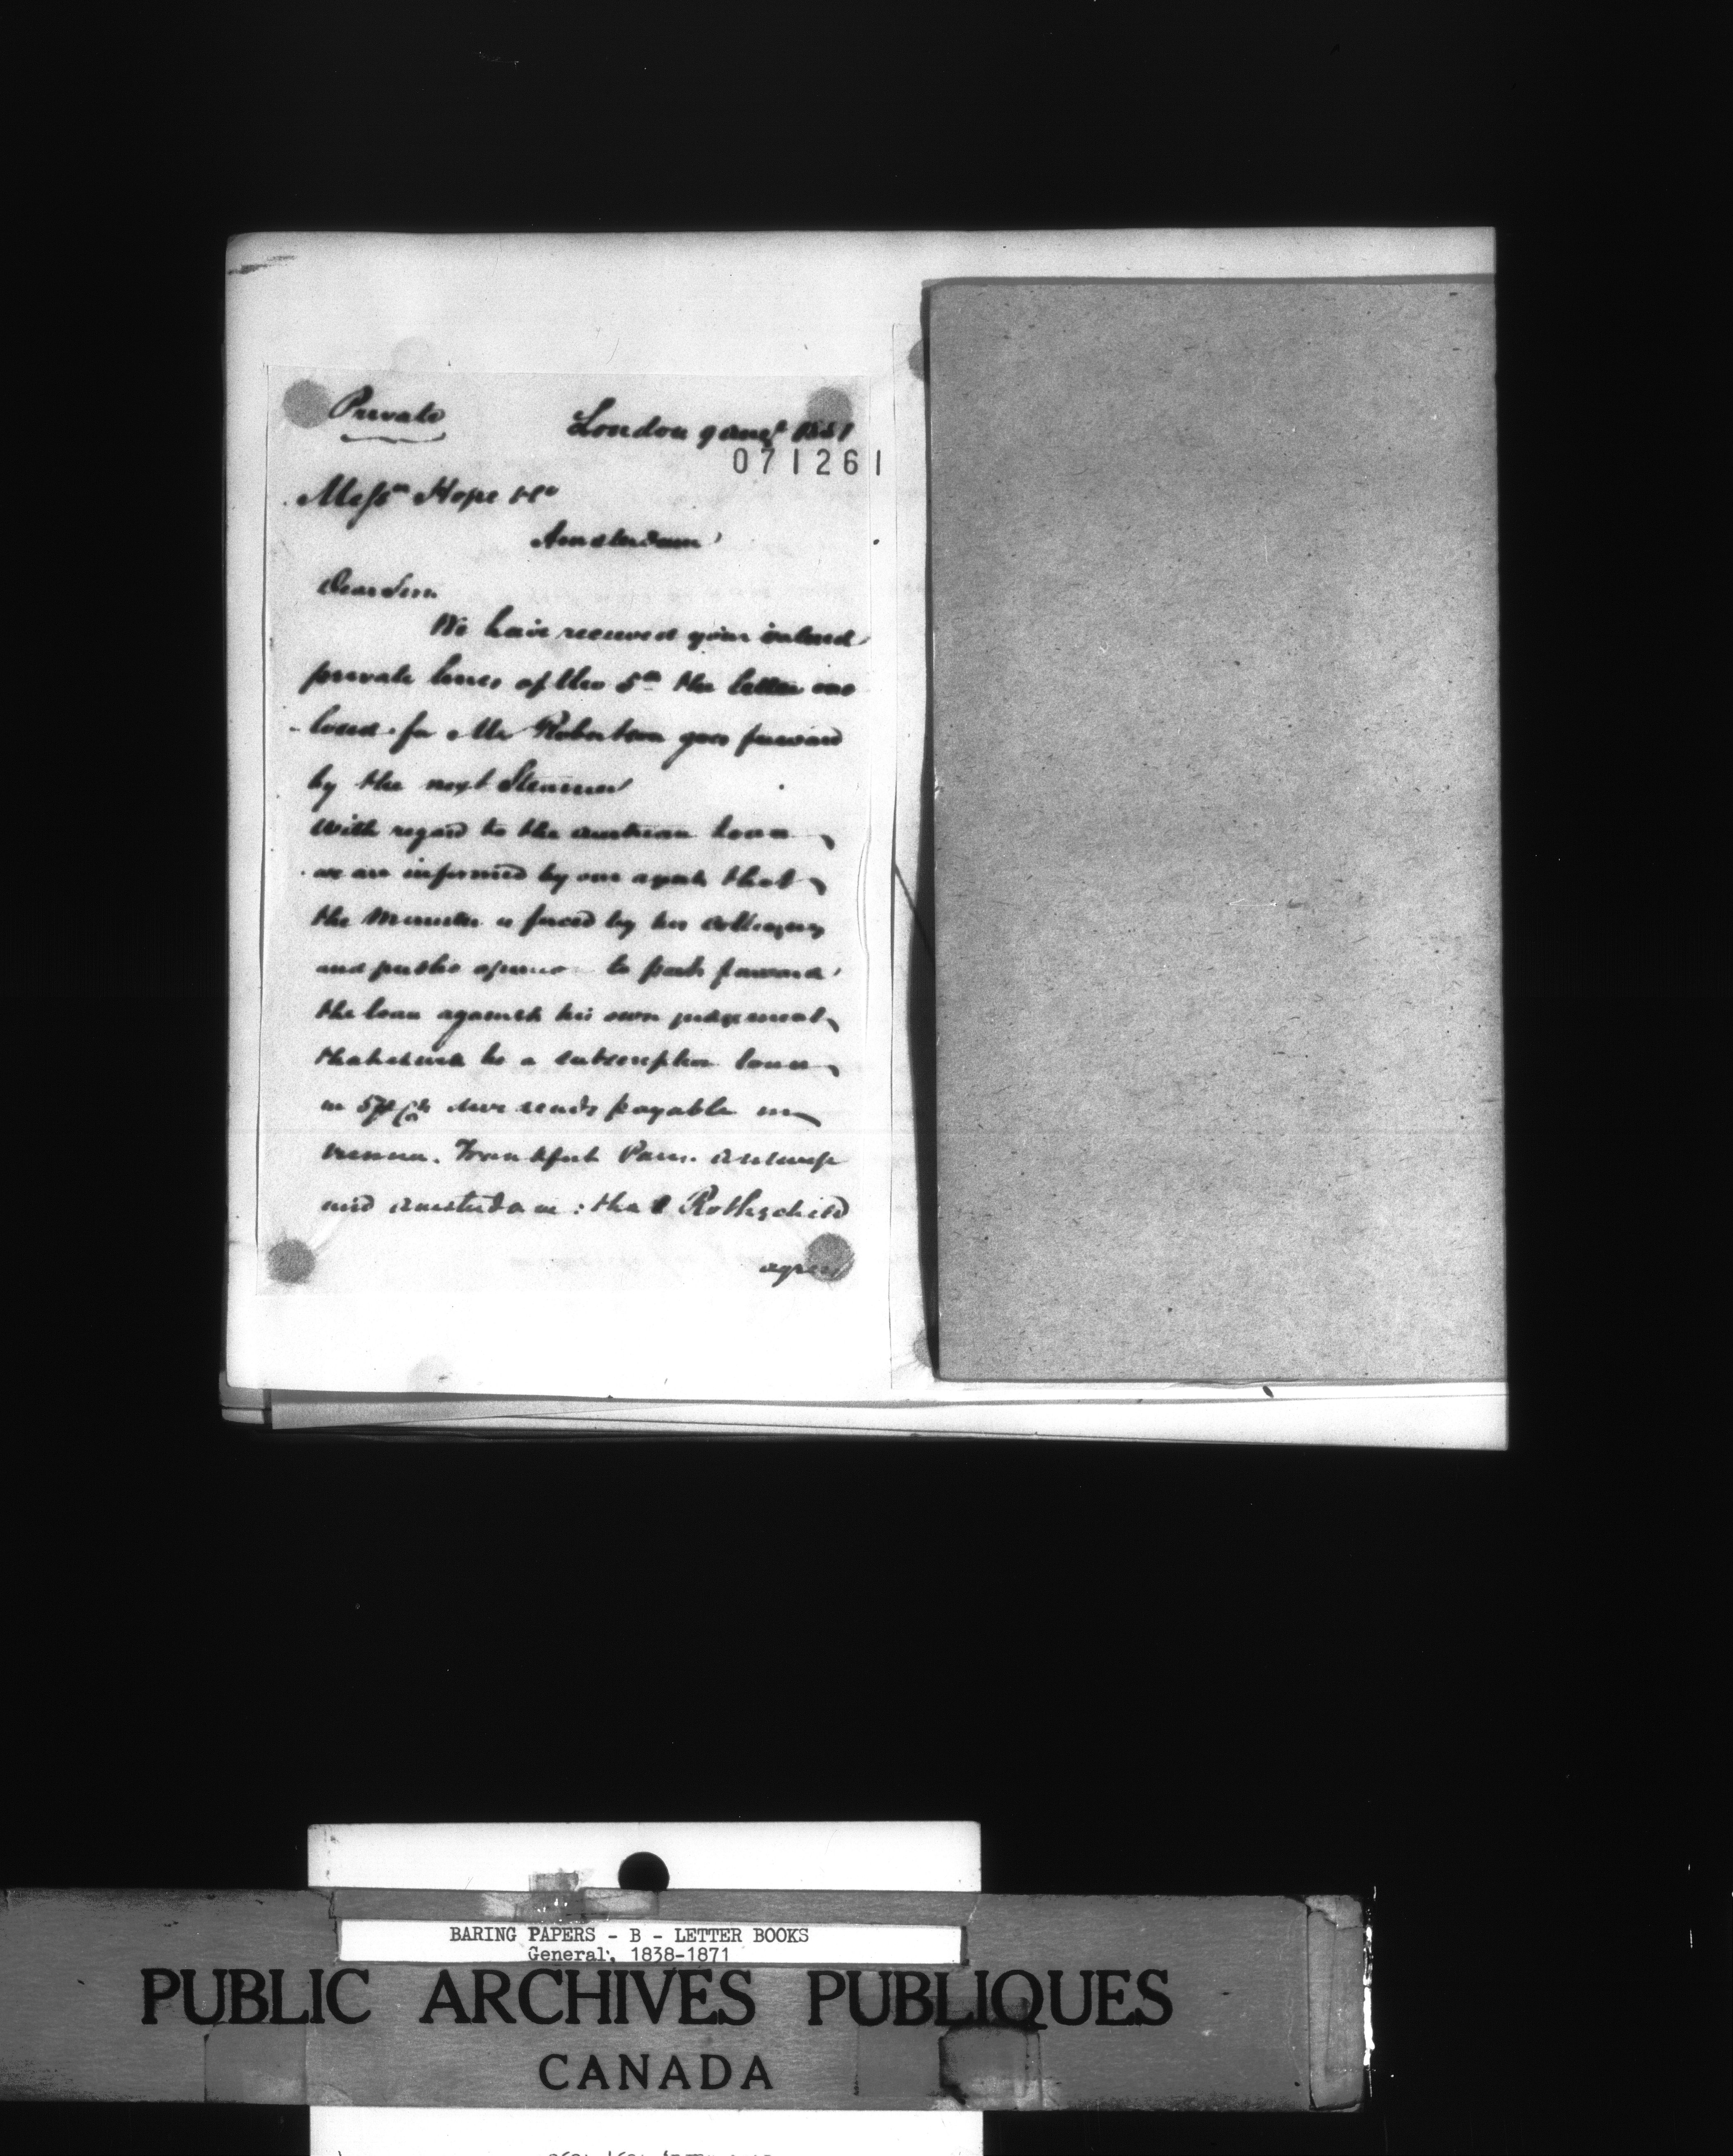 Private
London 9 Augt 1851
071261
Messrs Hope & Co
Amsterdam
Dear Sirs
We have received your valued
private lines of the 5th the letter enc
-losed for Mr Robertson goes forward
by the next Steamer
With regard to the Austrian Loan
we are informed by our agents that
the Minister is forced by his colleagues
and public opinion to push forward
the loan against his own judgement,
that it will be a subscription loan
in 5 p Ct payable in
Vienna. Frankfort Paris. Antwerp
and Amsterdam: that Rothschild
agrees
BARING PAPERS - B - LETTER BOOKS
General, 1838-1871
PUBLIC ARCHIVES PUBLIQUES
CANADA